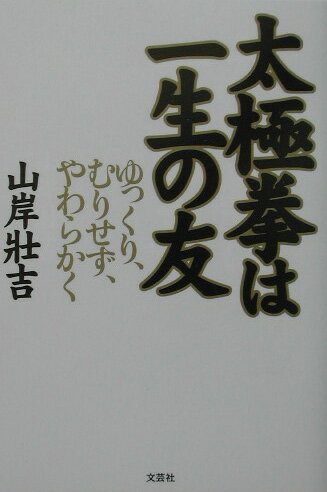 太極拳は
一生の友
ゆっくり、
むりせず、
やわらかく
山岸壯吉
文芸社